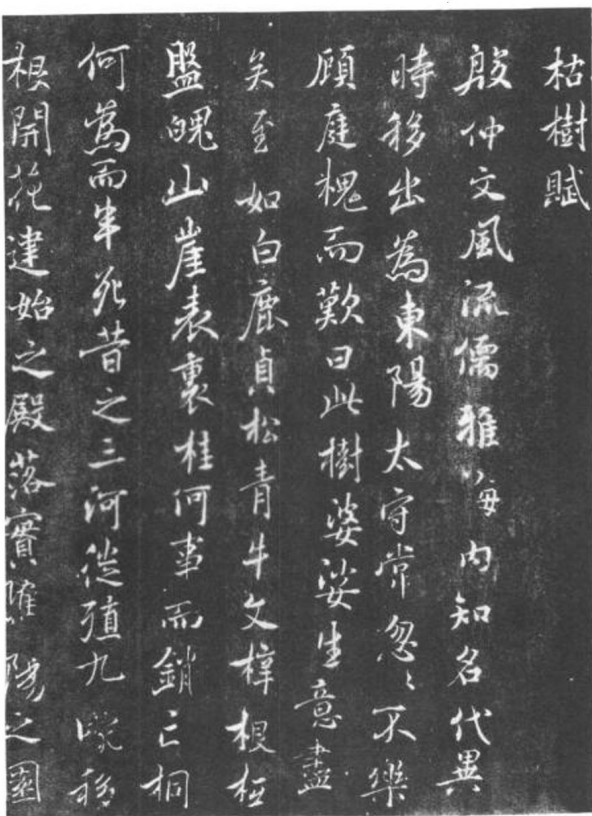 枯樹賦
殷仲文風流儒雅海内知名代異
時移出為東陽太守常忽〻不樂
顧庭槐而歎曰此樹婆娑生意盡
矣至如白鹿貞松青牛文梓根柢
盤魄山崖表裏桂何事而銷亡桐
何為而半死昔之三河徙殖九畹移
根開花建始之殿落實睢陽之園